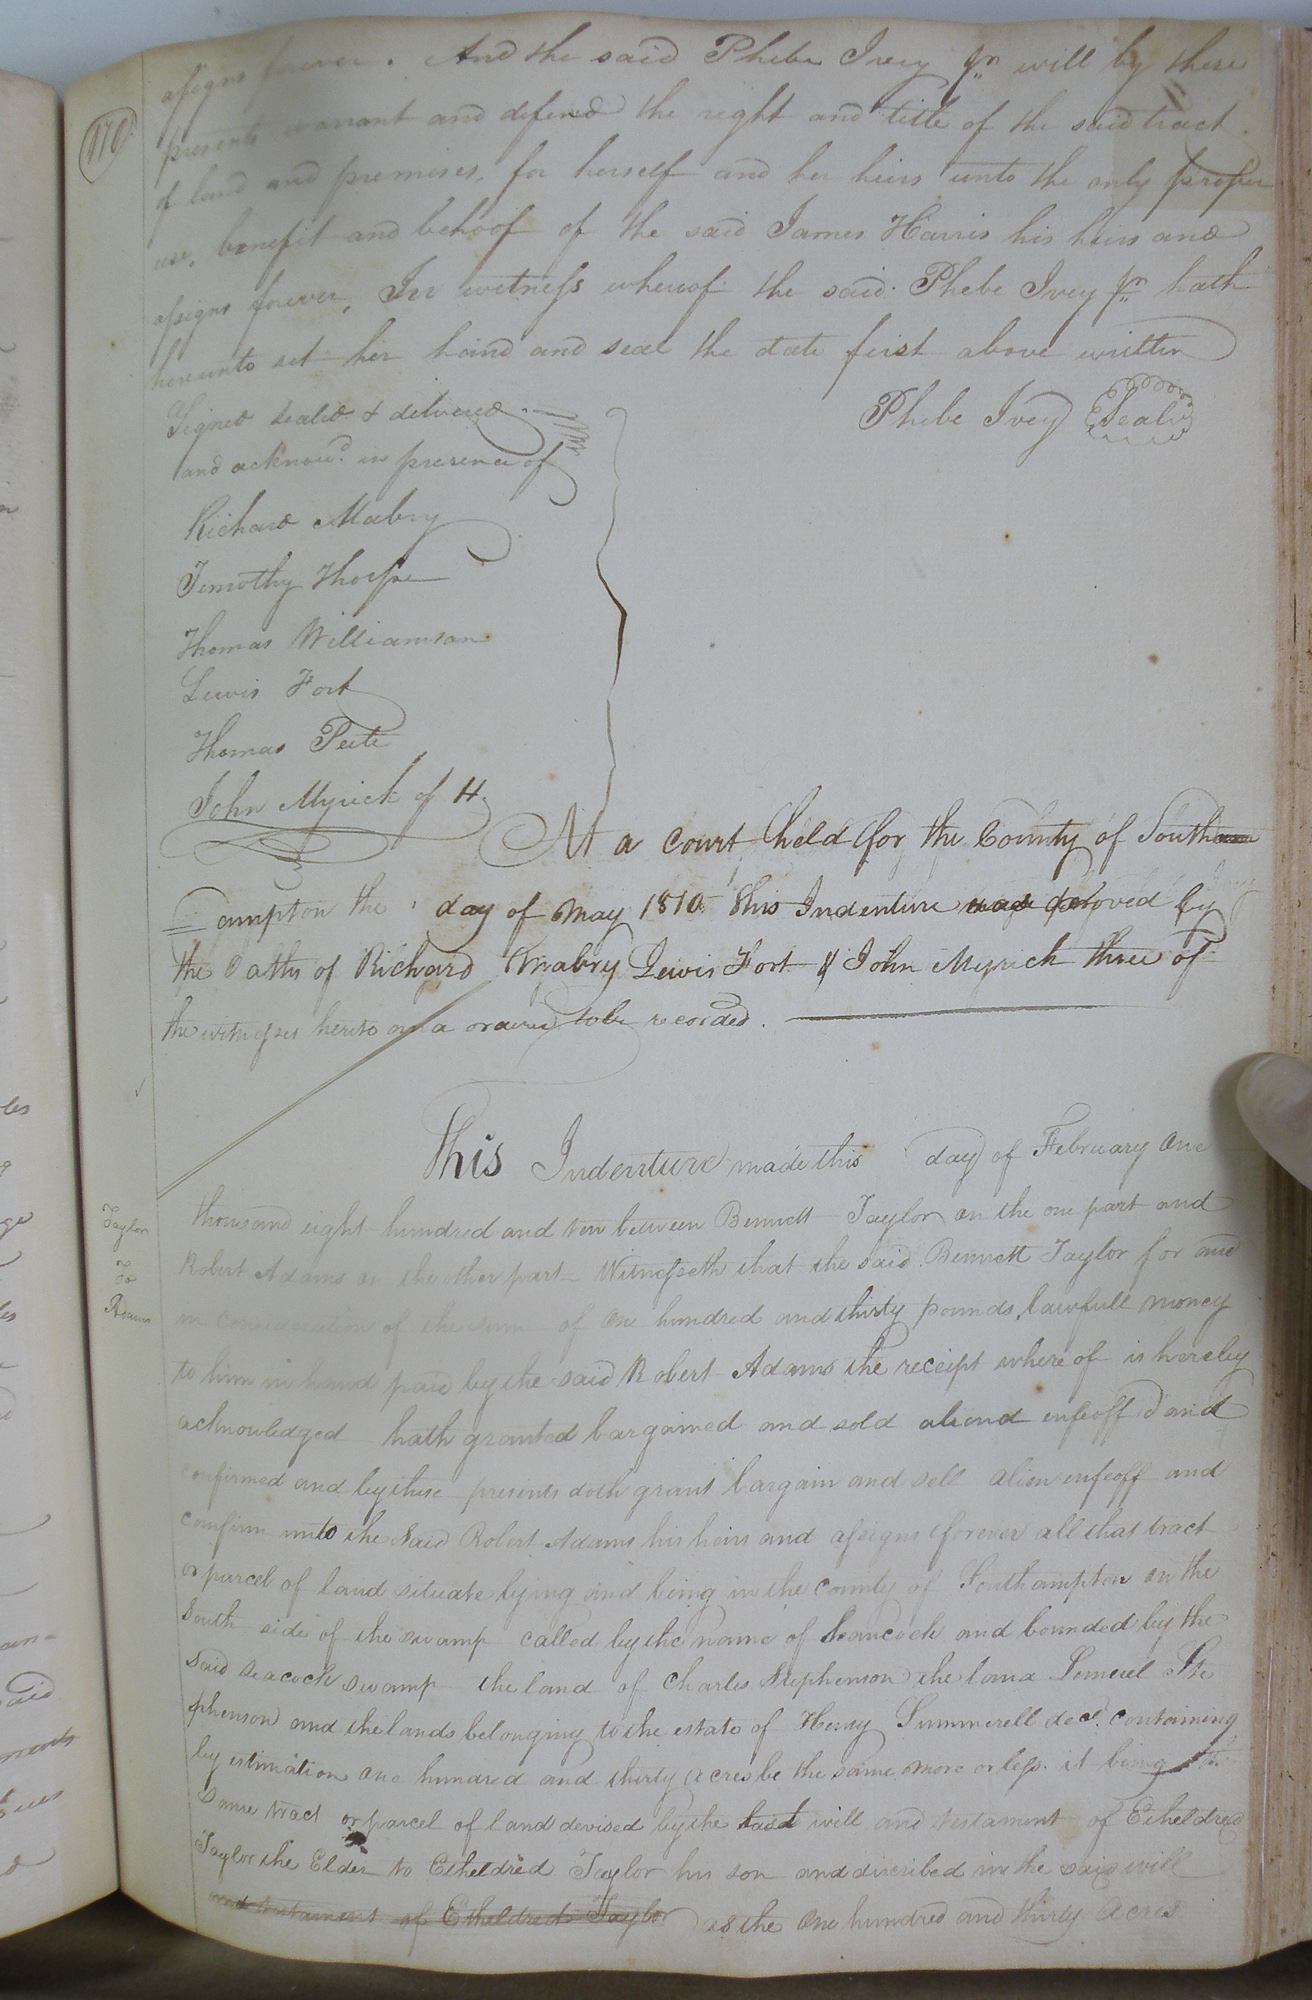 170
assigns forever. And the said Phebe Ivey Jr. will by these
presents warrant and defend the right and title of the said tract
of land and premises, for herself and her heirs unto the only proper
use, benefit and behoof of the said James Harris his heirs and
assigns forever, In witness whereof the said Phebe Ivey Jr. hath
hereunto set her hand and seal the date first above written
Signed sealed & delivered
Phebe Ivey Seal
and acknowd. in presence of
Richard Mabry
Timothy Thorpe
Thomas Williamson
Lewis Fort
Thomas Peete
John Myrick of H.
At a Court held for the County of South
ampton the day of May 1810 this Indenture was proved by
the Oaths of Richard Mabry Lewis Fort & John Myrick three of
the witnesses hereto and ordered to be recorded.
This Indenture made this day of February One
Taylor
To
Adams
thousand eight hundred and ten between Bennett Taylor on the one part and
Robert Adams on the other part Witnesseth that the said Bennett Taylor for and
in consideration of the sum of One hundred and thirty pounds, lawfull money
to him in hand paid by the said Robert Adams the receipt where of is hereby
acknowledged hath granted bargained and sold aliend enfeoff'd and
confirmed and by these presents doth grant bargain and sell alien enfeoff and
confirm unto the said Robert Adams his heirs and assigns forever all that tract
or parcel of land situate lying and being in the County of Southampton on the
South side of the swamp called by the name of Seacock and bounded by the
said Seacock swamp the land of Charles Stephenson the land Lemuel Ste
phenson and the lands belonging to the estate of Henry Summerell decd. containing
by estimation one hundred and thirty acres be the same more or less it being the
same tract or parcel of land devised by the last will and testament of Etheldred
Taylor the Elder to Etheldred Taylor his son and discribed in the said will
and testament of Etheldred Taylor as the One hundred and thirty Acres